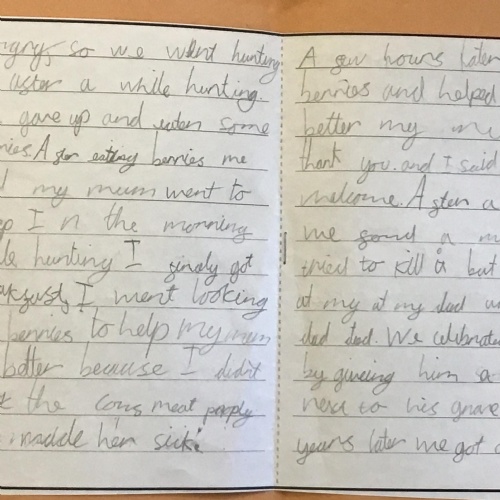 ngry, so we want hunting
aster a while hunting.
gave up and eaten some
ries. After eating berries me
my mum went to
ep I n the morning
le hunting I finely got
akfust, I went looking
berries to help my mum
better because I didn't
the cows meat
madde her sick.
A few hours later
berries and helped
better my
thank you. and I said
welcome. After a
me sound a
tried to kill it but
at my at my dad
dad dad. We celibrat
by giveing him a
next to his grave
years later me got